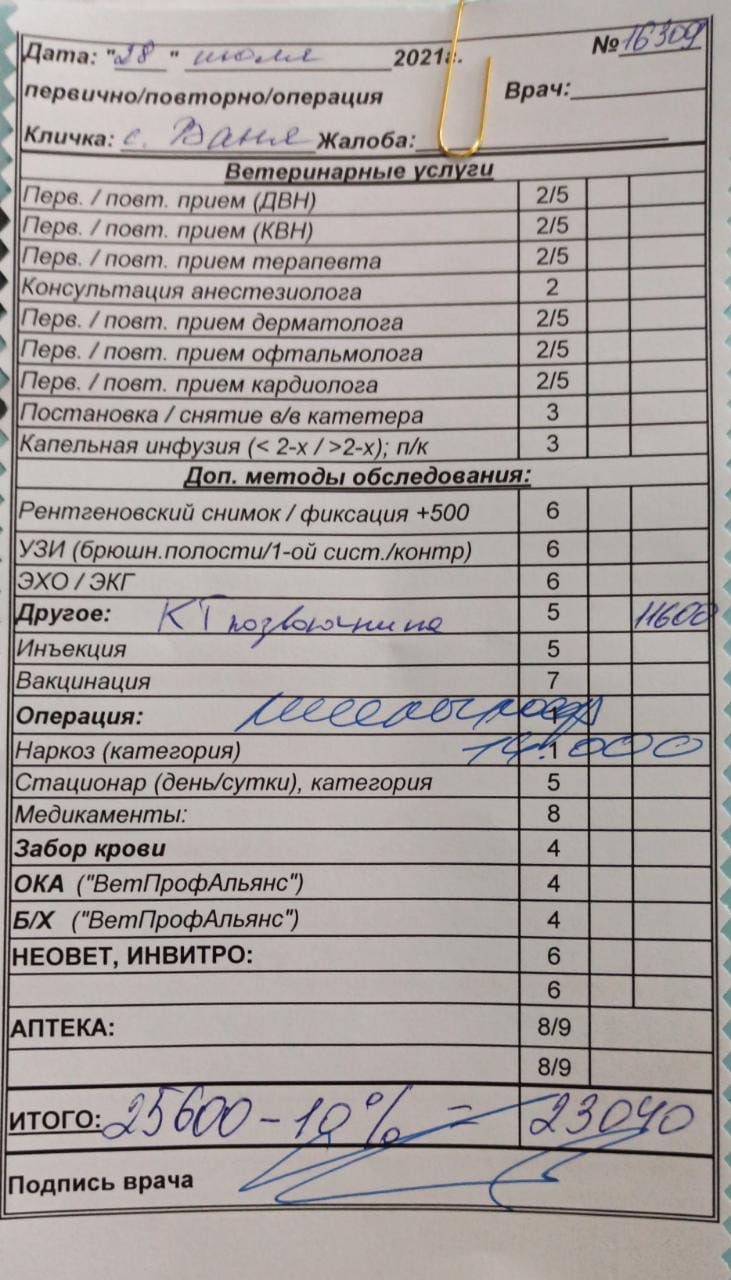 Дата: "28" июля 2021г. №16309
первично/повторно/операция Врач:
Кличка: с. Ваня Жалоба:
Ветеринарные услуги
Перв. / повт. прием (ДВН) 2/5
Перв. / повт. прием (КВН) 2/5
Перв. / повт. прием терапевта 2/5
Консультация анестезиолога 2
Перв. / повт. прием дерматолога 2/5
Перв. / повт. прием офтальмолога 2/5
Перв. / повт. прием кардиолога 2/5
Постановка / снятие в/в катетера 3
Капельная инфузия (< 2-х / >2-х); п/к 3
Доп. методы обследования:
Рентгеновский снимок / фиксация +500 6
УЗИ (брюшн.полости/1-ой сист./контр) 6
ЭХО / ЭКГ 6
Другое: КТ позвоночника 5 11600
Инъекция 5
Вакцинация 7
Операция: 1
Наркоз (категория) 1 14.000
Стационар (день/сутки), категория 5
Медикаменты: 8
Забор крови 4
ОКА ("ВетПрофАльянс") 4
Б/Х ("ВетПрофАльянс") 4
НЕОВЕТ, ИНВИТРО: 6
6
АПТЕКА: 8/9
8/9
ИТОГО: 25600 - 10% = 23040
Подпись врача